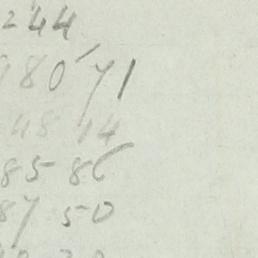 244
80 71
48 14
85 86
87 50